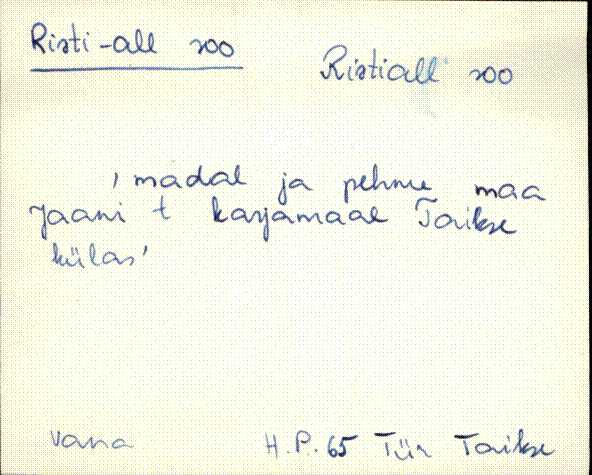 Risti-all soo
Ristiall soo
'madal ja pehme maa
Jaani t karjamaal Taikse
külas'
vana H.P. 65 Tür Taikse